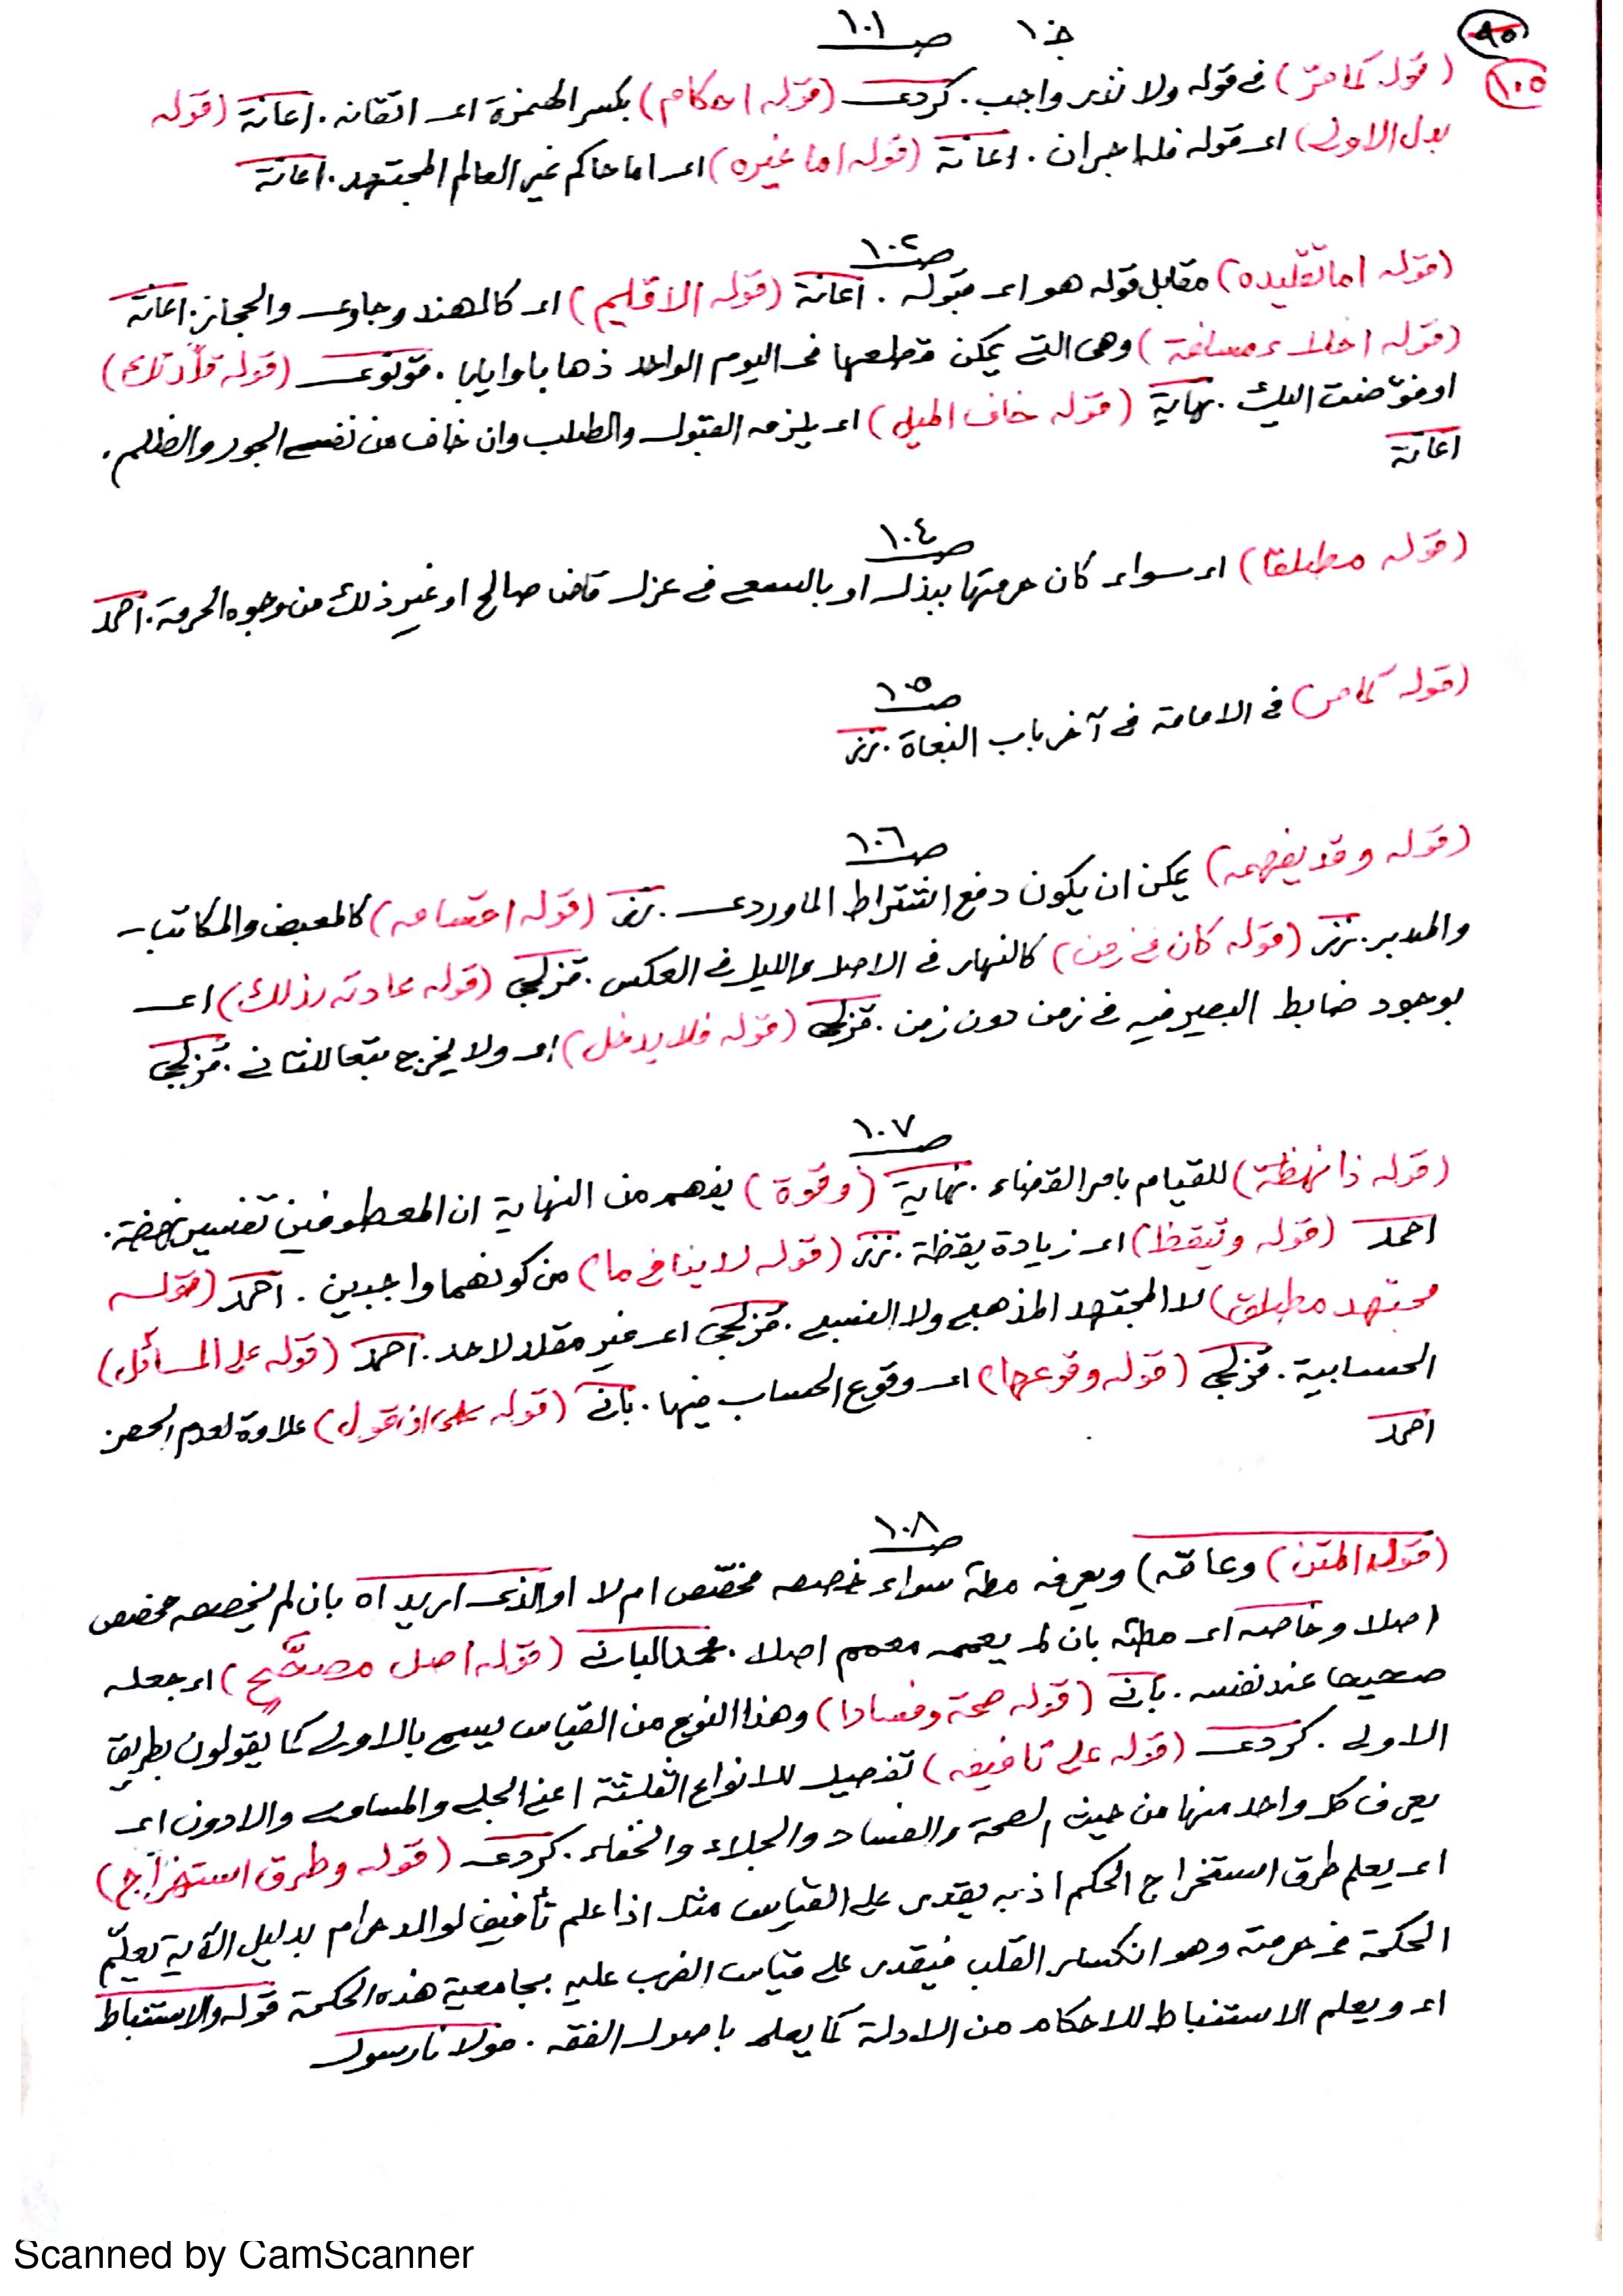 ٩٥
١٠٥
خ ١ صـ ١٠١
(قوله كما مرّ) فى قوله ولا نذر واجب. كردى (قوله احكام) بكسر الهمزة اى اتقانه. اعانة (قوله
بدل الاولى) اى قوله فله اجران. اعانة (قوله اما غيره) اى اما حاكم غير العالم المجتهد. اعانة
صـ ١٠٢
(قوله اما تقليده) مقابل قوله هو اى قبوله. اعانة (قوله الاقليم) اى كالهند وجاوى والحجاز. اعانة
(قوله اخلاء مسافة) وهى التى يمكن قطعها فى اليوم الواحد ذهابا وايابا. (قوله قلّدتك)
او فوّضت اليك. نهاية (قوله خاف الميل) اى يلزمه القبول والطلب وان خاف من نفسه الجور والظلم.
اعانة
صـ ١٠٤
(قوله مطلقا) اى سواء كان حرمتها ببذل او بالسعى فى عزل قاض صالح او غير ذلك من وجوه الحرمة. احمد
صـ ١٠٥
(قوله كما مر) فى الامامة فى آخر باب البغاة.
صـ ١٠٦
(قوله وقد يفهمه) يمكن ان يكون دفع اشتراط الماوردى. (قوله اقسامه) كالمبعض والمكاتب
والمدبر. (قوله كان فى زمن) كالنهار فى الاصل والليل فى العكس. قزلجى (قوله عادته بذلك) اى
بوجود ضابط البصير فيه فى زمن دون زمن. قزلجى (قوله فلا يدخل) اى ولا يخرج تبعا للثانى. قزلجى
صـ ١٠٧
(قوله ذا نهظة) للقيام بامر القضاء. نهاية (وقوة) يفهم من النهاية ان المعطوفين تفسير نهضة.
احمد (قوله وتيقظ) اى زيادة يقظة. (قوله لا ينافى ما) من كونهما واجبين. احمد (قوله
مجتهد مطلق) لا المجتهد المذهبى ولا النسبى. قزلجى اى غير مقلد لاحد. احمد (قوله على المسائل)
الحسابية. قزلجى (قوله وقوعها) اى وقوع الحساب فيها. بانى (قوله على ان نقول) علاوة لعدم الحصر
احمد
صـ ١٠٨
(قوله المتن) وعامّه) ويعرفه مطة سواء خصصه مخصّص ام لا او الذى اريد اه بان لم يخصصه مخصص
اصلا وخاصه اى مطة بان لم يعممه معمم اصلا. محمد البانى (قوله اصل مصحّح) اى جعله
صحيحا عند نفسه. بانى (قوله صحة وفسادا) وهذا النوع من القياس يسمى بالاولى كما يقولون بطريق
الاولى. كردى (قوله على تافيفه) تفصيل للانواع الثلثة اعنى الجلى والمساوى والادون اى
يعرف كل واحد منها من حيث الصحة والفساد والجلاء والخفاء. كردى (قوله وطرق استخراج)
اى يعلم طرق استخراج الحكم اذ به يقدر على القياس مثلا اذا علم تأفيف لوالد حرام بدليل الآية يعلّم
الحكمة فى حرمته وهو انكسار القلب فيقدر على قياس الضرب عليه بجامعية هذه الحكمة قوله والاستنباط
اى ويعلم الاستنباط للاحكام من الادلة كما يعلم باصول الفقه. مولانا رسول
Scanned by CamScanner